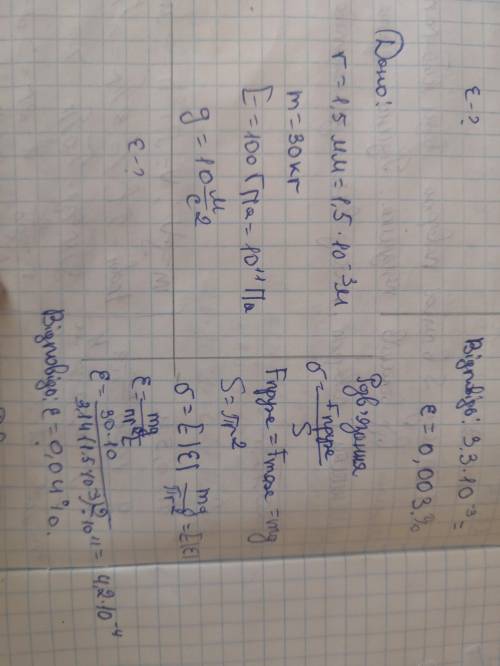 ε-?
Відповідь: 3,3·10⁻³ =
ε = 0,003.%
Дано:
r = 1,5 мм = 1,5·10⁻³м
m = 30кг
E = 100ГПа = 10¹¹Па
g = 10 м/с2
ε-?
Розв'язання
σ = Fпруж/S
Fпруж = Fтяж = mg
S = πr²
σ = E|ε| mg/πr² = E|ε|
ε = mg/πr²E
ε = 30·10/3,14(1,5·10⁻³)²·10¹¹ = 4,2·10⁻⁴
Відповідь: ε = 0,04%.